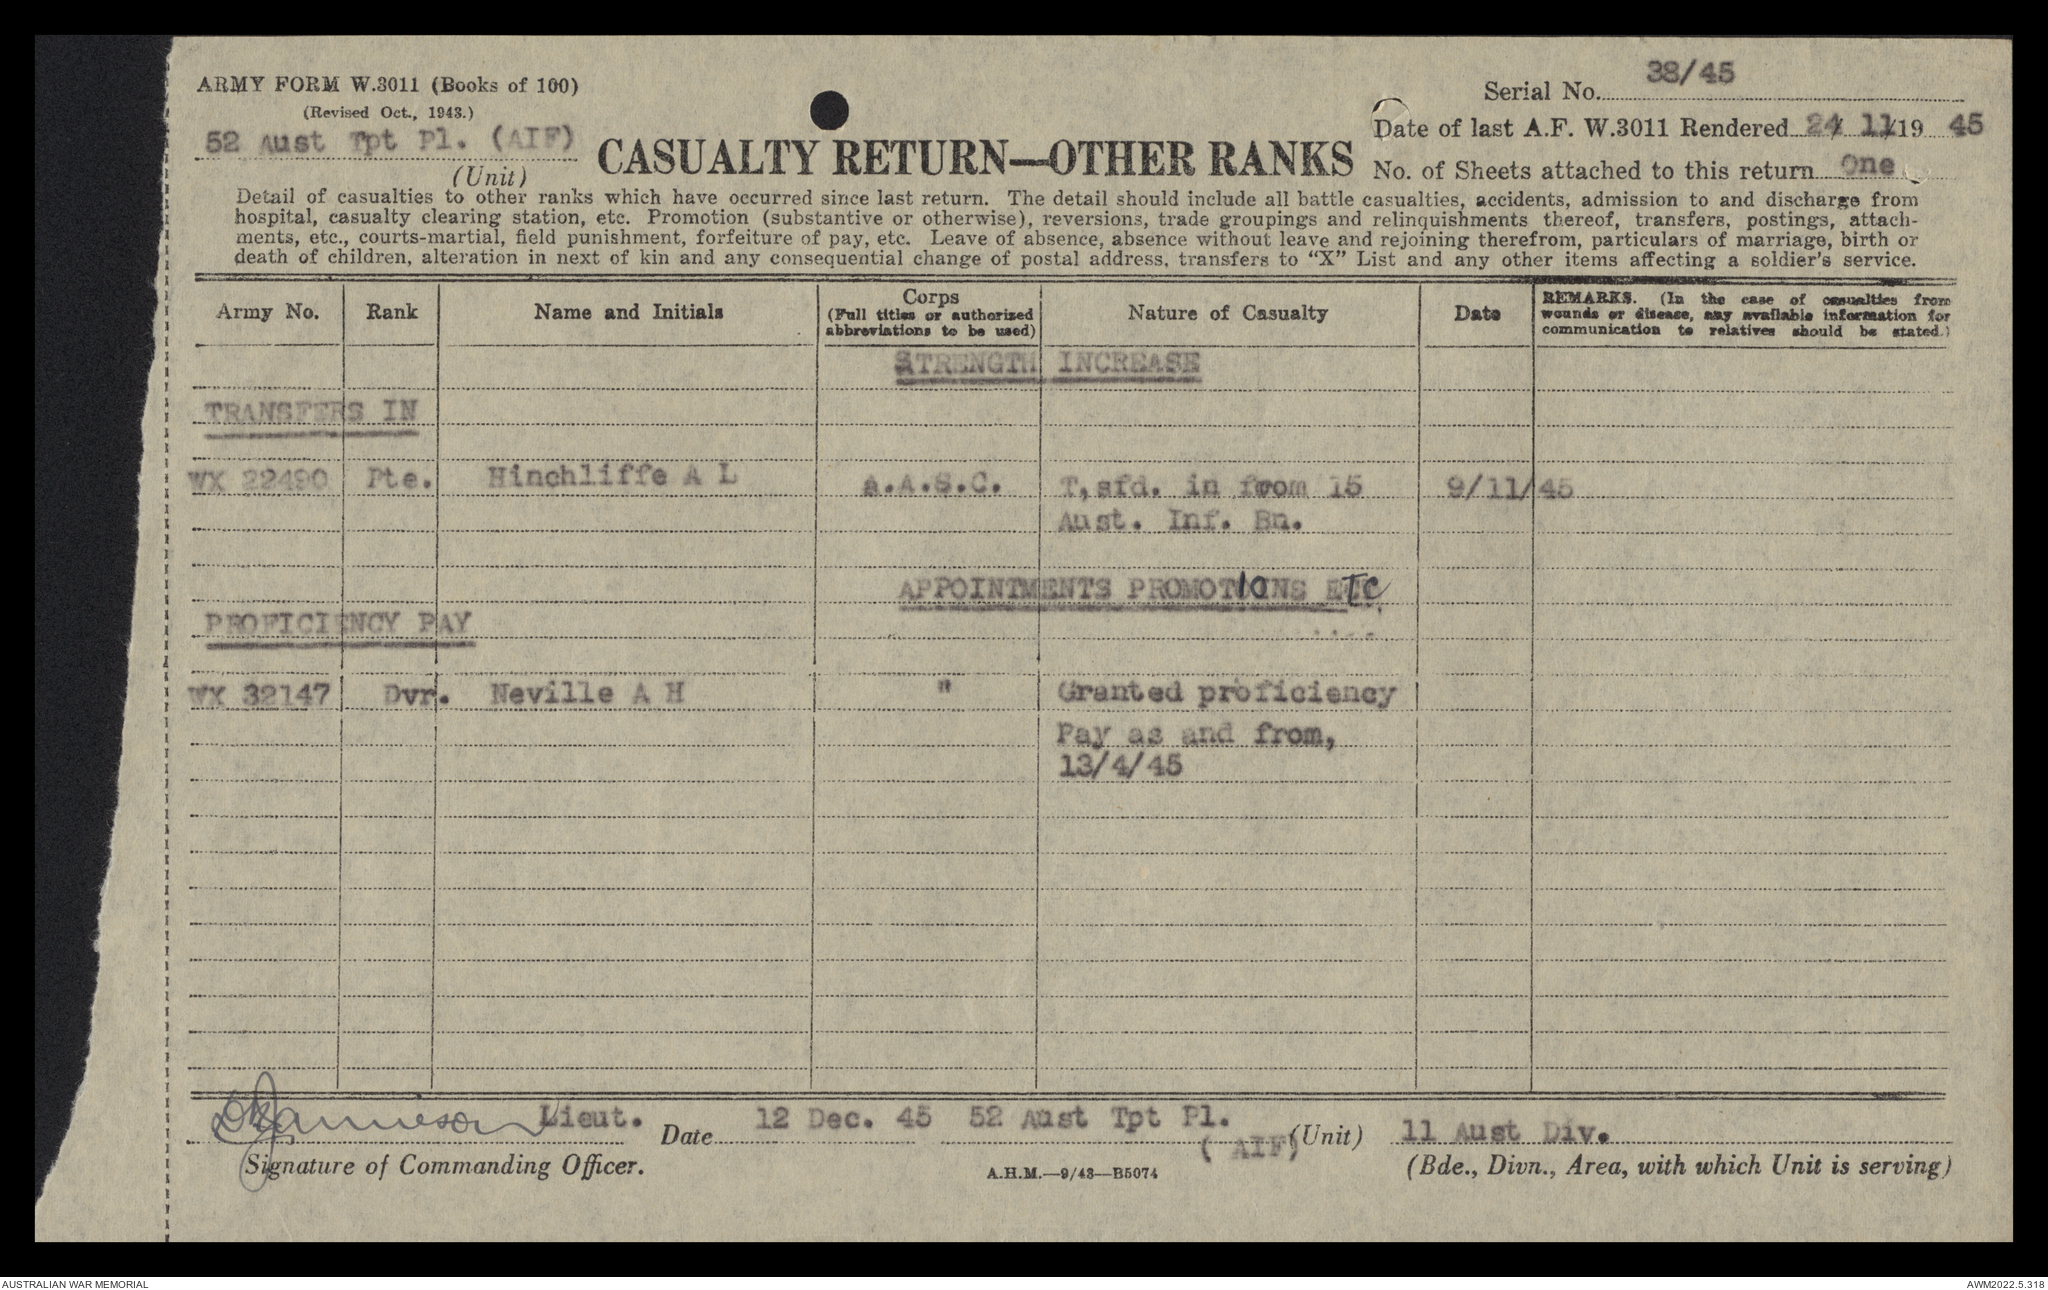 ARMY FORM W.3011 (Books of 100)
(Revised Oct., 1943.)
52 Aust Tpt Pl. (AIF)
(Unit)
CASUALTY RETURN—OTHER RANKS
Serial No. 38/45
Date of last A.F. W.3011 Rendered 24/ 11/19 45
No. of Sheets attached to this return One
Detail of casualties to other ranks which have occurred since last return. The detail should include all battle casualties, accidents, admission to and discharge from
hospital, casualty clearing station, etc. Promotion (substantive or otherwise), reversions, trade groupings and relinquishments thereof, transfers, postings, attach-
ments, etc., courts-martial, field punishment, forfeiture of pay, etc. Leave of absence, absence without leave and rejoining therefrom, particulars of marriage, birth or
death of children, alteration in next of kin and any consequential change of postal address, transfers to “X” List and any other items affecting a soldier's service.
Army No. Rank Name and Initials Corps (Full titles or authorized abbreviations to be used) Nature of Casualty Date REMARKS. (In the case of casualties from wounds or disease, any available information for communication to relatives should be stated.)
STRENGTH INCREASE
TRANSFERS IN
WX 22490 Pte. Hinchliffe A L A.A.S.C. T,sfd. in from 15 9/11/45
Aust. Inf. Bn.
APPOINTMENTS PROMOTIONS ETC
PROFICIENCY PAY
WX 32147 Dvr. Neville A H " Granted proficiency
Pay as and from,
13/4/45
Jamieson Lieut. Date 12 Dec. 45 52 Aust Tpt Pl. (AIF) (Unit) 11 Aust Div.
Signature of Commanding Officer. A.H.M.—9/43—B5074 (Bde., Divn., Area, with which Unit is serving)
AUSTRALIAN WAR MEMORIAL AWM2022.5.318